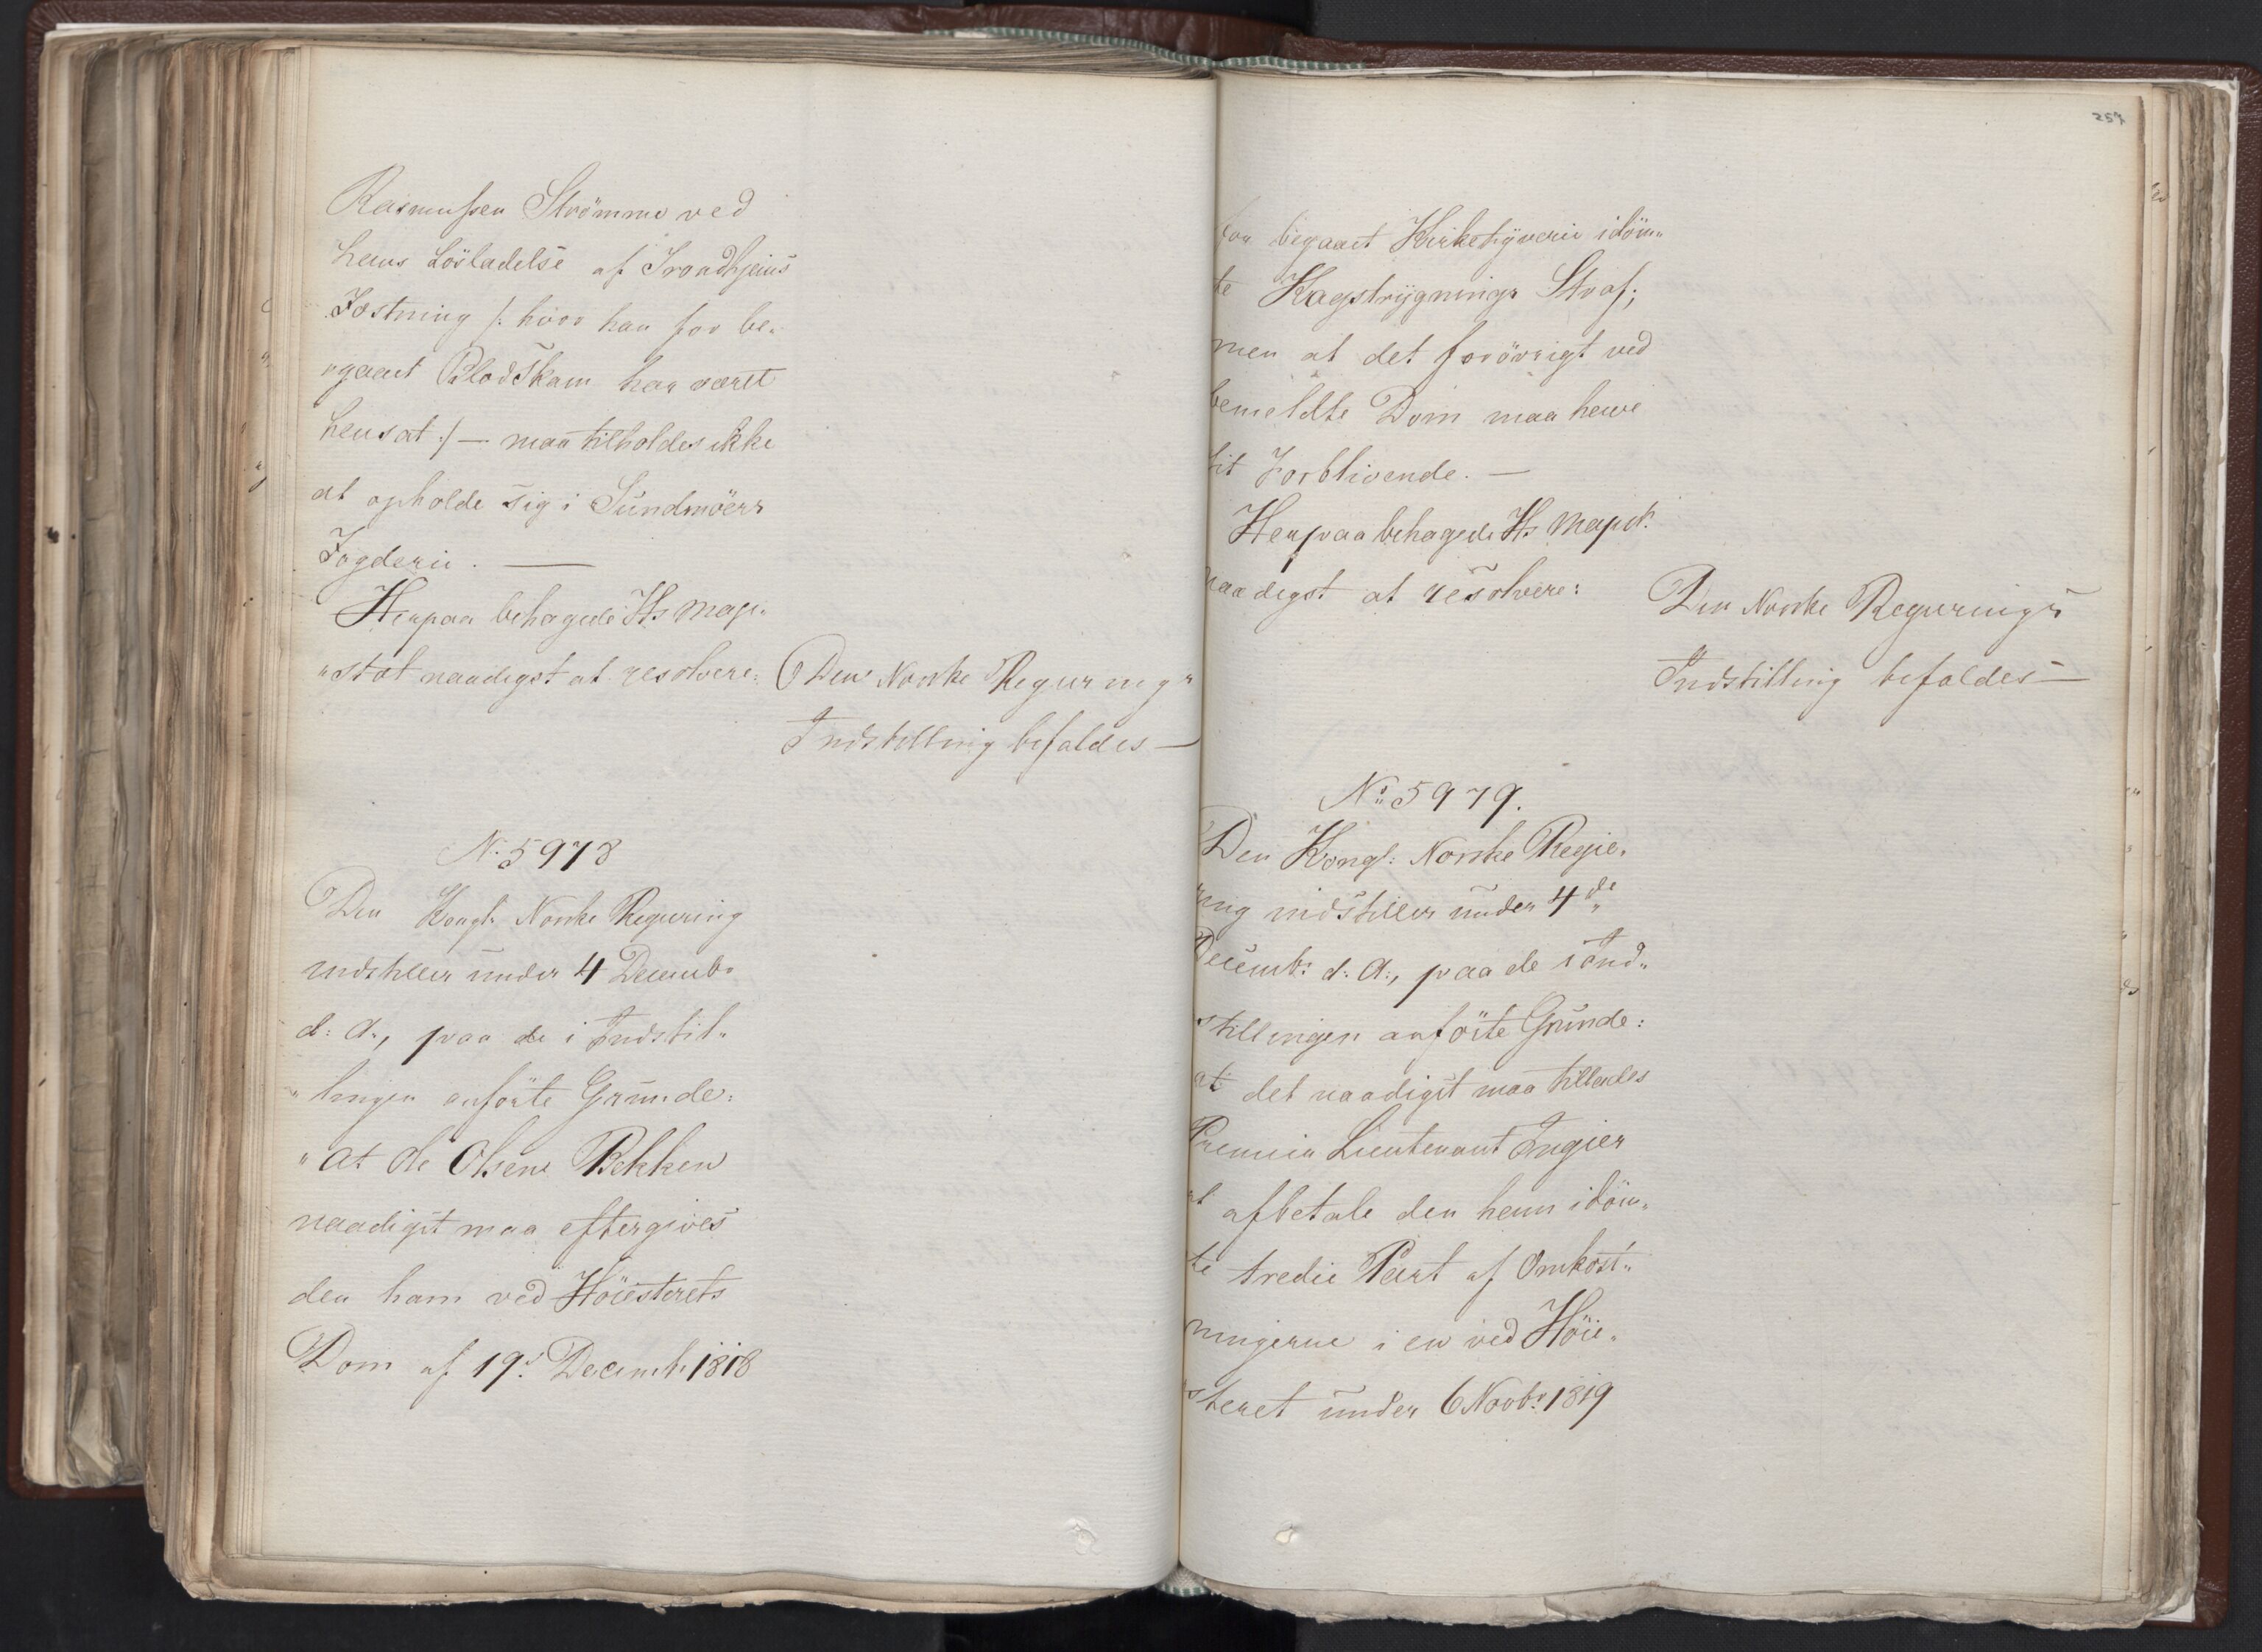 Rasmussen Strömme ved
hans Lösladelse af Trondhjems
Fæstning /: hvor han for be„
„gaaet Blodskam har været
hensat :/ — maa tilholdes ikke
at opholde sig i Sundmöers
Fogderie. —
Herpaa behagede Hs Maje„
„stæt naadigst at resolvere:
Den Norske Regjerings
Indstilling bifaldes —
No 5978
Den Kongl: Norske Regjering
indstiller under 4 Decemb:
d: A:, paa de i Indstil„
„lingen anförte Grunde:
„at Ole Olsen Bekken
naadigst maa eftergives
den ham ved Höiesterets
Dom af 19d Decemb: 1818
257
for begaaet Kirketyverie idöm„
te Kagstrygnings Straf;
men at det forövrigt ved
bemeldte Dom maa have
sit Forblivende. —
Herpaa behagede Hs Majest:
naadigst at resolvere:
Den Norske Regjerings
Indstilling bifaldes —
No 5979.
Den Kongl: Norske Regje„
ring indstiller under 4de
Decemb: d: A:, paa de i Ind„
stillingen anförte Grunde:
at det naadigst maa tillades
Premier Lieutenant Ingier
at afbetale den ham idöm„
te tredie Part af Omkost„
ningerne i en ved Höie„
steret under 6 Novbr: 1819